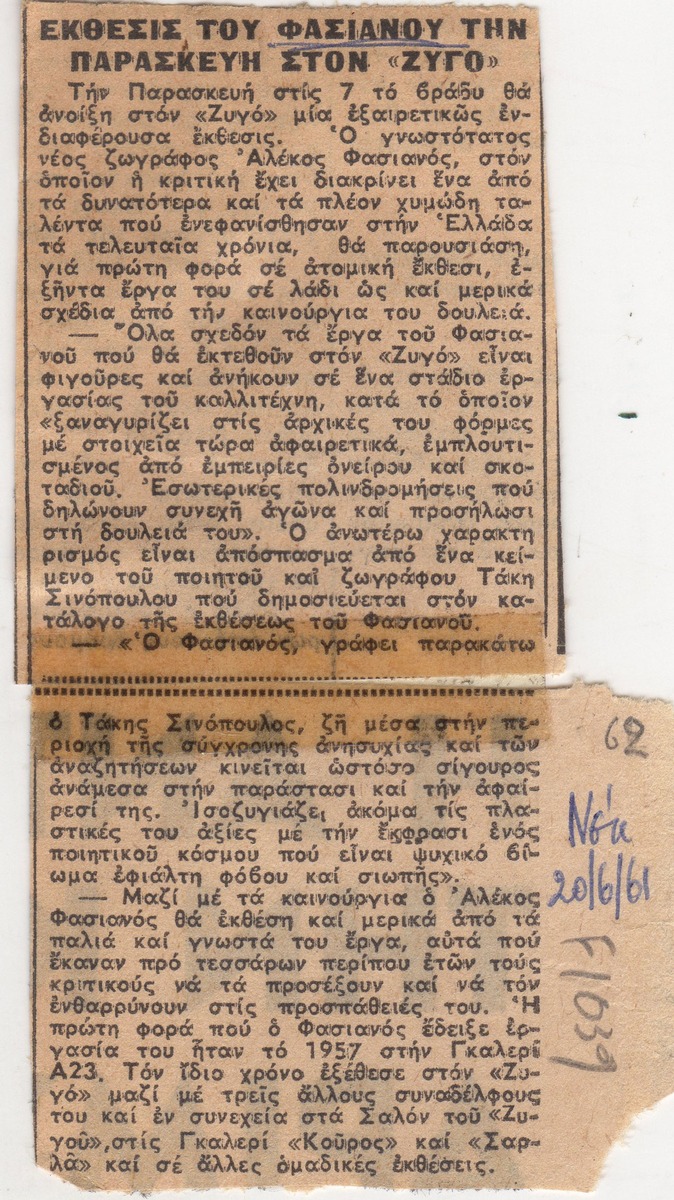 ΕΚΘΕΣΙΣ ΤΟΥ ΦΑΣΙΑΝΟΥ ΤΗΝ
ΠΑΡΑΣΚΕΥΗ ΣΤΟΝ «ΖΥΓΟ»
Τήν Παρασκευή στίς 7 τό βράδυ θά
ἀνοίξη στόν «Ζυγό» μία ἐξαιρετικῶς ἐν-
διαφέρουσα ἔκθεσις. Ὁ γνωστότατος
νέος ζωγράφος Ἀλέκος Φασιανός, στόν
ὁποῖον ἡ κριτική ἔχει διακρίνει ἕνα ἀπό
τά δυνατότερα καί τά πλέον χυμώδη τα-
λέντα πού ἐνεφανίσθησαν στήν Ἑλλάδα
τά τελευταῖα χρόνια, θά παρουσιάση,
γιά πρώτη φορά σέ ἀτομική ἔκθεσι, ἑ-
ξῆντα ἔργα του σέ λάδι ὡς καί μερικά
σχέδια ἀπό τήν καινούργια του δουλειά.
— Ὅλα σχεδόν τά ἔργα τοῦ Φασια-
νοῦ πού θά ἐκτεθοῦν στόν «Ζυγό» εἶναι
φιγοῦρες καί ἀνήκουν σέ ἕνα στάδιο ἐρ-
γασίας τοῦ καλλιτέχνη, κατά τό ὁποῖον
«ξαναγυρίζει στίς ἀρχικές του φόρμες
μέ στοιχεῖα τώρα ἀφαιρετικά, ἐμπλουτι-
σμένος ἀπό ἐμπειρίες ὀνείρου καί σκο-
ταδιοῦ. Ἐσωτερικές πολινδρομήσεις πού
δηλώνουν συνεχῆ ἀγῶνα καί προσήλωσι
στή δουλειά του». Ὁ ἀνωτέρω χαρακτη
ρισμός εἶναι ἀπόσπασμα ἀπό ἕνα κεί-
μενο τοῦ ποιητοῦ καί ζωγράφου Τάκη
Σινόπουλου πού δημοσιεύεται στόν κα-
τάλογο τῆς ἐκθέσεως τοῦ Φασιανοῦ.
— «Ὁ Φασιανός, γράφει παρακάτω
ὁ Τάκης Σινόπουλος, ζῆ μέσα στήν πε-
ριοχή τῆς σύγχρονης ἀνησυχίας καί τῶν
ἀναζητήσεων κινεῖται ὡστόσο σίγουρος
ἀνάμεσα στήν παράστασι καί τήν ἀφαί-
ρεσί της. Ἰσοζυγιάζει ἀκόμα τίς πλα-
στικές του ἀξίες μέ τήν ἔκφρασι ἑνός
ποιητικοῦ κόσμου πού εἶναι ψυχικό βί-
ωμα ἐφιάλτη φόβου καί σιωπῆς».
— Μαζί μέ τά καινούργια ὁ Ἀλέκος
Φασιανός θά ἐκθέση καί μερικά ἀπό τά
παλιά καί γνωστά του ἔργα, αὐτά πού
ἔκαναν πρό τεσσάρων περίπου ἐτῶν τούς
κριτικούς νά τά προσέξουν καί νά τόν
ἐνθαρρύνουν στίς προσπάθειές του. Ἡ
πρώτη φορά πού ὁ Φασιανός ἔδειξε ἐρ-
γασία του ἦταν τό 1957 στήν Γκαλερί
Α23. Τόν ἴδιο χρόνο ἐξέθεσε στόν «Ζυ-
γό» μαζί μέ τρεῖς ἄλλους συναδέλφους
του καί ἐν συνεχεία στά Σαλόν τοῦ «Ζυ-
γοῦ», στίς Γκαλερί «Κοῦρος» καί «Σαρ-
λᾶ» καί σέ ἄλλες ὁμαδικές ἐκθέσεις.
62
Νέα
20/6/61
F1039